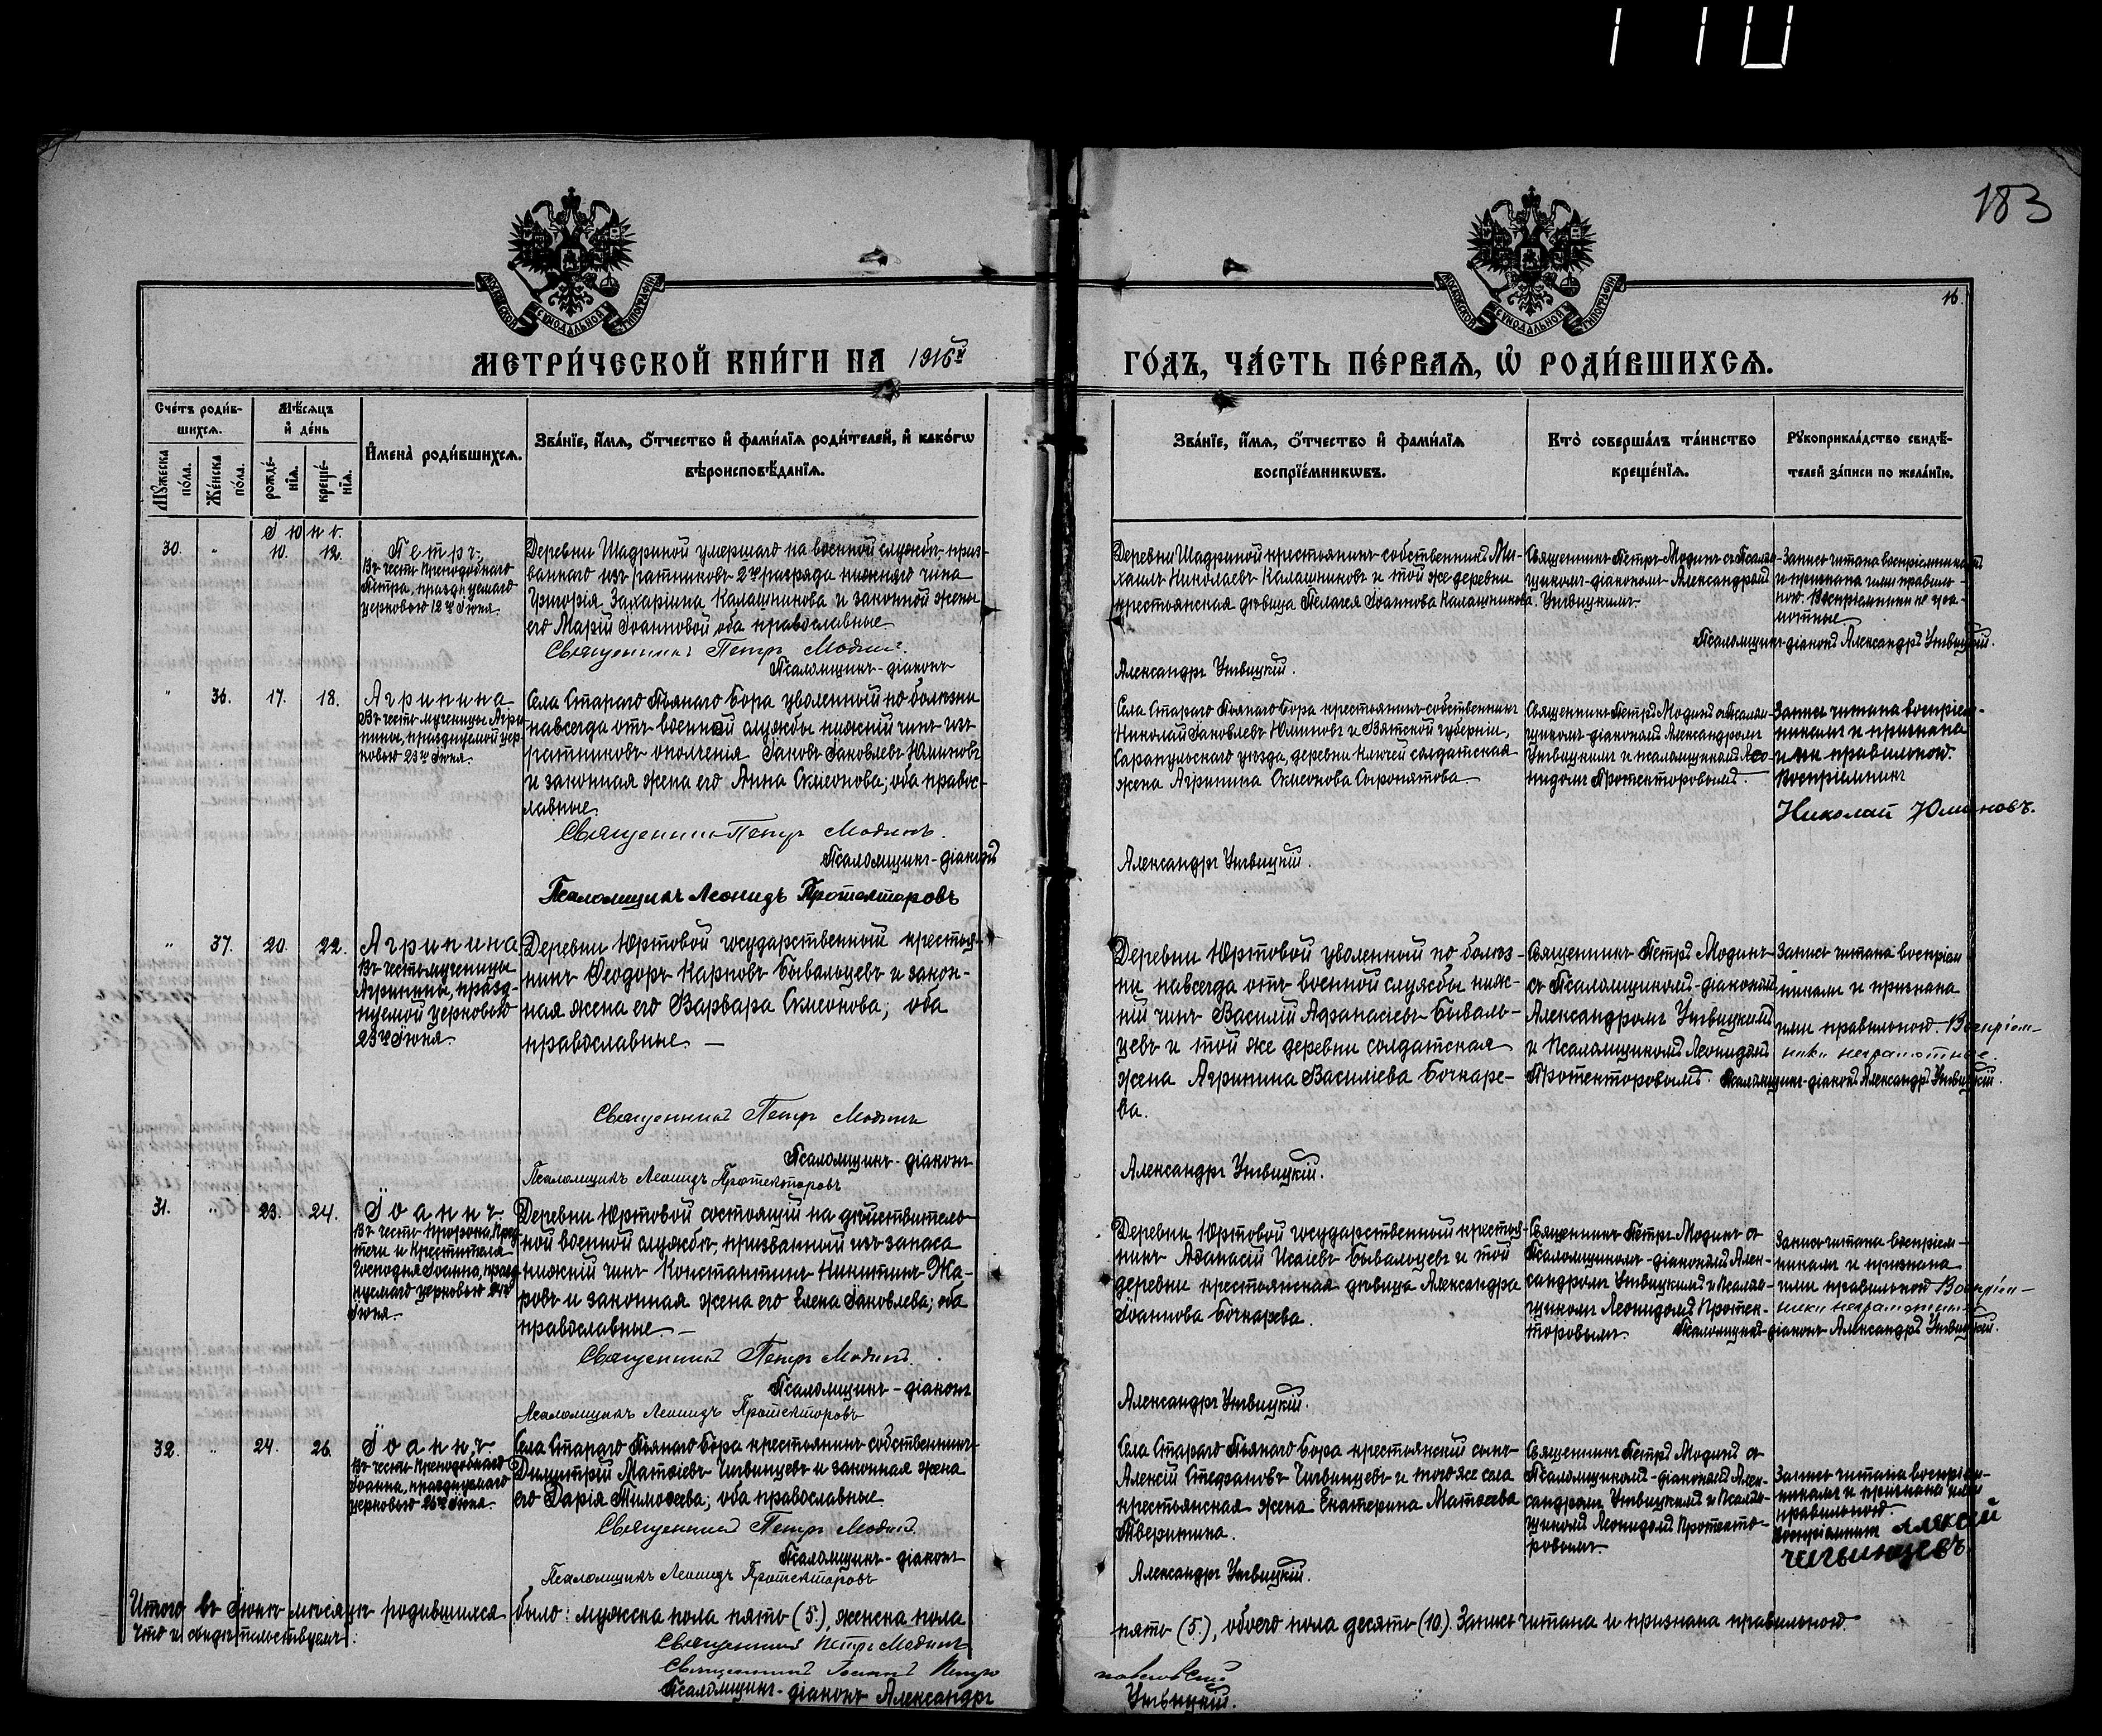 110
183
МОСКОВСКОЙ СУНОДАЛЬНОЙ ТИПОГРАФІИ
МОСКОВСКОЙ СУНОДАЛЬНОЙ ТИПОГРАФІИ
16.
МЕТРИ́ЧЕСКОЙ КНИ́ГИ НА 1916й ГО́ДЪ, ЧА́СТЬ ПЕ́РВАѦ, Ѡ РОДИ́ВШИХСѦ.
Сче́тъ роди́в-
шихсѧ.
Мѣ́сѧцъ
и҆ де́нь
Му́жеска по́ла.
Же́нска по́ла.
рожде́-
нїѧ.
креще́-
нїѧ.
И҆мена̀ роди́вшихсѧ.
Зва́нїе, и҆́мѧ, ѻ҆́тчество и҆ фами́лїѧ роди́телей, и҆ како́гѡ
вѣроисповѣ́данїѧ.
Зва́нїе, и҆́мѧ, ѻ҆́тчество и҆ фами́лїѧ
воспрїе́мникѡвъ.
Кто̀ соверша́лъ та́инство
креще́нїѧ.
Рꙋкоприкла́дство свидѣ́-
телей за́писи по жела́нїю.
Іюнь.
30. " 10. 12.
Петръ.
Въ честь Преподобнаго
Петра, празднуемаго
церковью 12го Іюня.
Деревни Шадриной умершаго на военной службѣ приз-
ваннаго изъ ратниковъ 2го разряда нижняго чина
Григорія Захаріина Калашникова и законной жены
его Маріи Іоанновой, оба православные.
Священникъ Петръ Модинъ.
Псаломщикъ-діаконъ
Деревни Шадриной крестьянинъ-собственникъ Ми-
хаилъ Николаевъ Калашниковъ и той же деревни
крестьянская дѣвица Пелагея Іоаннова Калашникова.
Александръ Унвицкій.
Священникъ Петръ Модинъ съ Псалом-
щикомъ-діакономъ Александромъ
Унвицкимъ.
Запись читана воспріемниками
и признана ими правиль-
ною. Воспріемники не гра-
мотные.
Псаломщикъ-діаконъ Александръ Унвицкій.
" 36. 17. 18.
Агрипина
Въ честь мученицы Агри-
пины, празднуемой цер-
ковью 23го Іюня.
Села Стараго Пьянаго Бора уволенный по болѣзни
навсегда отъ военной службы нижній чинъ изъ
ратниковъ ополченія Іаковъ Іаковлевъ Юминовъ
и законная жена его Анна Симеонова; оба правос-
лавные.
Священникъ Петръ Модинъ.
Псаломщикъ-діаконъ
Псаломщикъ Леонидъ Протекторовъ
Села Стараго Пьянаго Бора крестьянинъ-собственникъ
Николай Іаковлевъ Юминовъ и Вятской губерніи,
Сарапульскаго уѣзда, деревни Ключей солдатская
жена Агрипина Симеонова Сыропятова.
Александръ Унвицкій.
Священникъ Петръ Модинъ съ Псалом-
щикомъ-діакономъ Александромъ
Унвицкимъ и псаломщикомъ Лео-
нидомъ Протекторовымъ.
Запись читана воспріем-
никамъ и признана
ими правильною.
Воспріемникъ
Николай Юминовъ.
" 37. 20. 22.
Агрипина
Въ честь мученицы
Агрипины, празд-
нуемой церковью
23го Іюня.
Деревни Юртовой государственный крестья-
нинъ Ѳеодоръ Карповъ Бывальцевъ и закон-
ная жена его Варвара Симеонова; оба
православные. —
Священникъ Петръ Модинъ
Псаломщикъ-діаконъ
Псаломщикъ Леонидъ Протекторовъ
Деревни Юртовой уволенный по болѣз-
ни навсегда отъ военной службы ниж-
ній чинъ Василій Аѳанасіевъ Бываль-
цевъ и той же деревни солдатская
жена Агрипина Василіева Бочкаре-
ва.
Александръ Унвицкій.
Священникъ Петръ Модинъ
съ Псаломщикомъ-діакономъ
Александромъ Унвицкимъ
и Псаломщикомъ Леонидомъ
Протекторовымъ.
Запись читана воспріем
никамъ и признана
ими правильною. Воспріем-
ники неграмотные.
Псаломщикъ-діаконъ Александръ Унвицкій.
31. " 23. 24.
Іоаннъ
Въ честь Пророка, Пред-
течи и Крестителя
Господня Іоанна, празд-
нуемаго церковью 24го
Іюня.
Деревни Юртовой состоящій на дѣйствитель-
ной военной службѣ, призванный изъ запаса
нижній чинъ Константинъ Никитинъ Жа-
ровъ и законная жена его Елена Іаковлева; оба
православные. —
Священникъ Петръ Модинъ.
Псаломщикъ-діаконъ
Псаломщикъ Леонидъ Протекторовъ
Деревни Юртовой государственный крестья-
нинъ Аѳанасій Исаіевъ Бывальцевъ и той
деревни крестьянская дѣвица Александра
Іоаннова Бочкарева.
Александръ Унвицкій.
Священникъ Петръ Модинъ съ
Псаломщикомъ-діакономъ Алек-
сандромъ Унвицкимъ и Псалом-
щикомъ Леонидомъ Протек-
торовымъ.
Запись читана воспріем-
никамъ и признана
ими правильною Воспріем-
ники неграмотные
Псаломщикъ-діаконъ Александръ Унвицкій.
32. " 24. 26.
Іоаннъ
Въ честь Преподобнаго
Іоанна, празднуемаго
церковью 26го Іюня.
Села Стараго Пьянаго Бора крестьянинъ-собственникъ
Димитрій Матѳіевъ Чигвинцевъ и законная жена
его Дарія Тимоѳеева; оба православные.
Священникъ Петръ Модинъ.
Псаломщикъ-діаконъ
Псаломщикъ Леонидъ Протекторовъ
Села Стараго Пьянаго Бора крестьянскій сынъ
Алексій Стефановъ Чигвинцевъ и того же села
крестьянская жена Екатерина Матѳеева
Тверитина.
Александръ Унвицкій.
Священникъ Петръ Модинъ съ
Псаломщикомъ-діакономъ Алек-
сандромъ Унвицкимъ и Псалом-
щикомъ Леонидомъ Протекто-
ровымъ.
Запись читана воспріем-
никамъ и признана ими
правильною.
Воспріемникъ Алексій
Чигвинцевъ.
Итого въ Іюнѣ мѣсяцѣ родившихся было: мужска пола пять (5.), женска пола пять (5.), обоего пола десять (10.). Запись читана и признана правильною.
Что и свидѣтельствуемъ:
Священникъ Петръ Модинъ
Священникъ Іоаннъ Петропавловскій
Псаломщикъ-діаконъ Александръ Унвицкій.